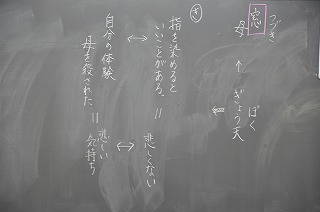 つづき
窓
母
↑
ぼく
ぎょう天
⇐
き
指を染めると
いいことがある。
＝
悲しくない
↔
↔
自分の体験
母を殺された
＝
悲しい
気持ち